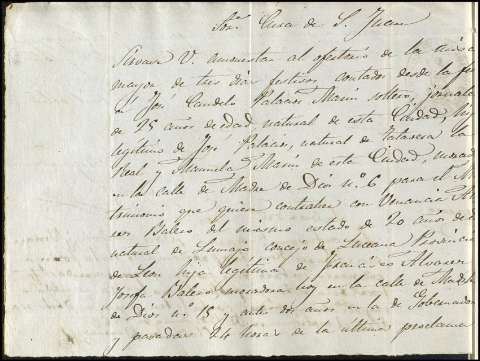 Sor. Cura de S. Juan
Sirvase V. amonestar al ofertorio de la misa
mayor de tres dias festivos contados desde la fha
a José Candela Palacios Marin soltero, jornale
de 25 años de edad, natural de esta Ciudad, hij
legitimo de José Palacios, natural de Talavera la
Real y Manuela Marin de esta Ciudad, morad
en la calle de Madre de Dios nº 6 para el M
trimonio que quiere contraher con Venancia Al
res Balero del mismo estado de 20 años de e
natural de concejo de Provincia
de Leon hija legitima de Francisco Alvarez
Josefa Balero moradora hoy en la calle de Madre
de Dios nº 15 y antes dos años en la de Gobernador
y pasadas 24 horas de la última proclama